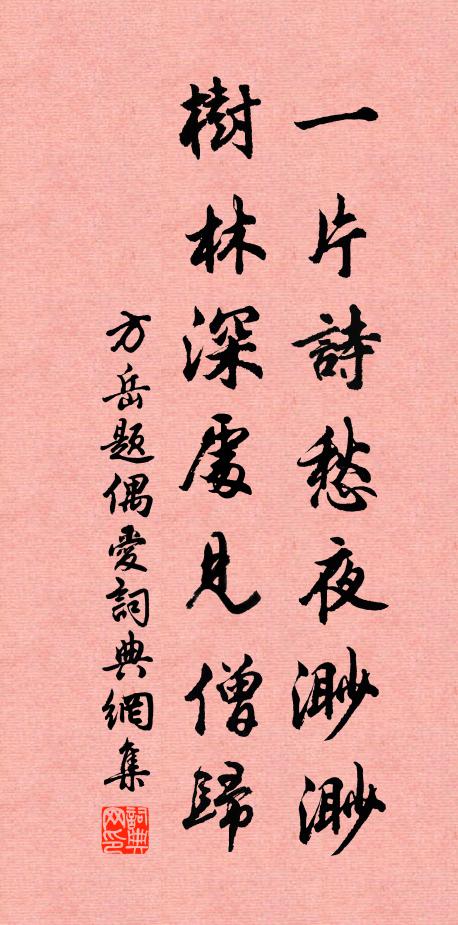 一片詩愁夜渺渺
樹林深處見僧歸
方岳題偶愛詞典網集
詞典网印